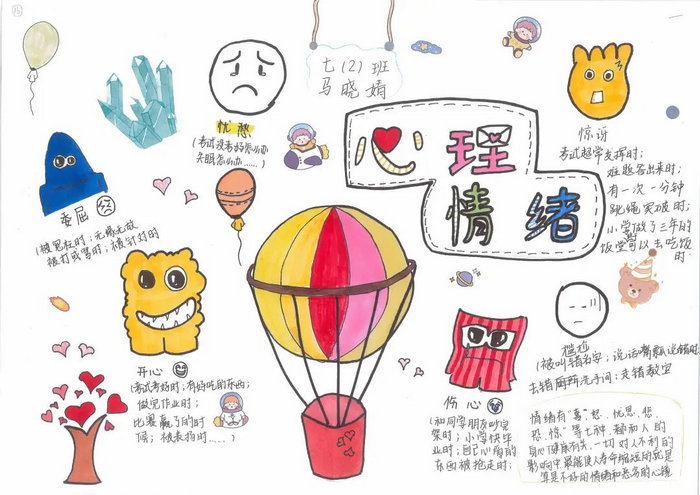 15
七(2)班
马晓婧
心理
情绪
忧愁
(考试没考好怎么办
失眠怎么办……)
惊讶
考试超常发挥时;
难题答出来时;
有一次一分钟
跳绳突破时;
小学做了三年的
饭堂可以去吃饭
时
委屈
(被冤枉时;无缘无故
被打或骂时;被针对时
开心
(考试考好时;有好吃的东西;
做完作业时;
比赛赢了的时
候;被表扬时……)
伤心
(和同学朋友吵完
架时;小学快毕
业时;自己心爱的
东西被抢走时;
尴尬
(被叫错名字;说话嘴瓢说错时
去错厕所洗手间;走错教室
情绪有"喜、怒、忧、思、悲、
恐、惊"等七种,
身心健康有关,一切对人不利的
影响中最能使人寿命缩短的就是
算是不好的情绪和恶劣的心境